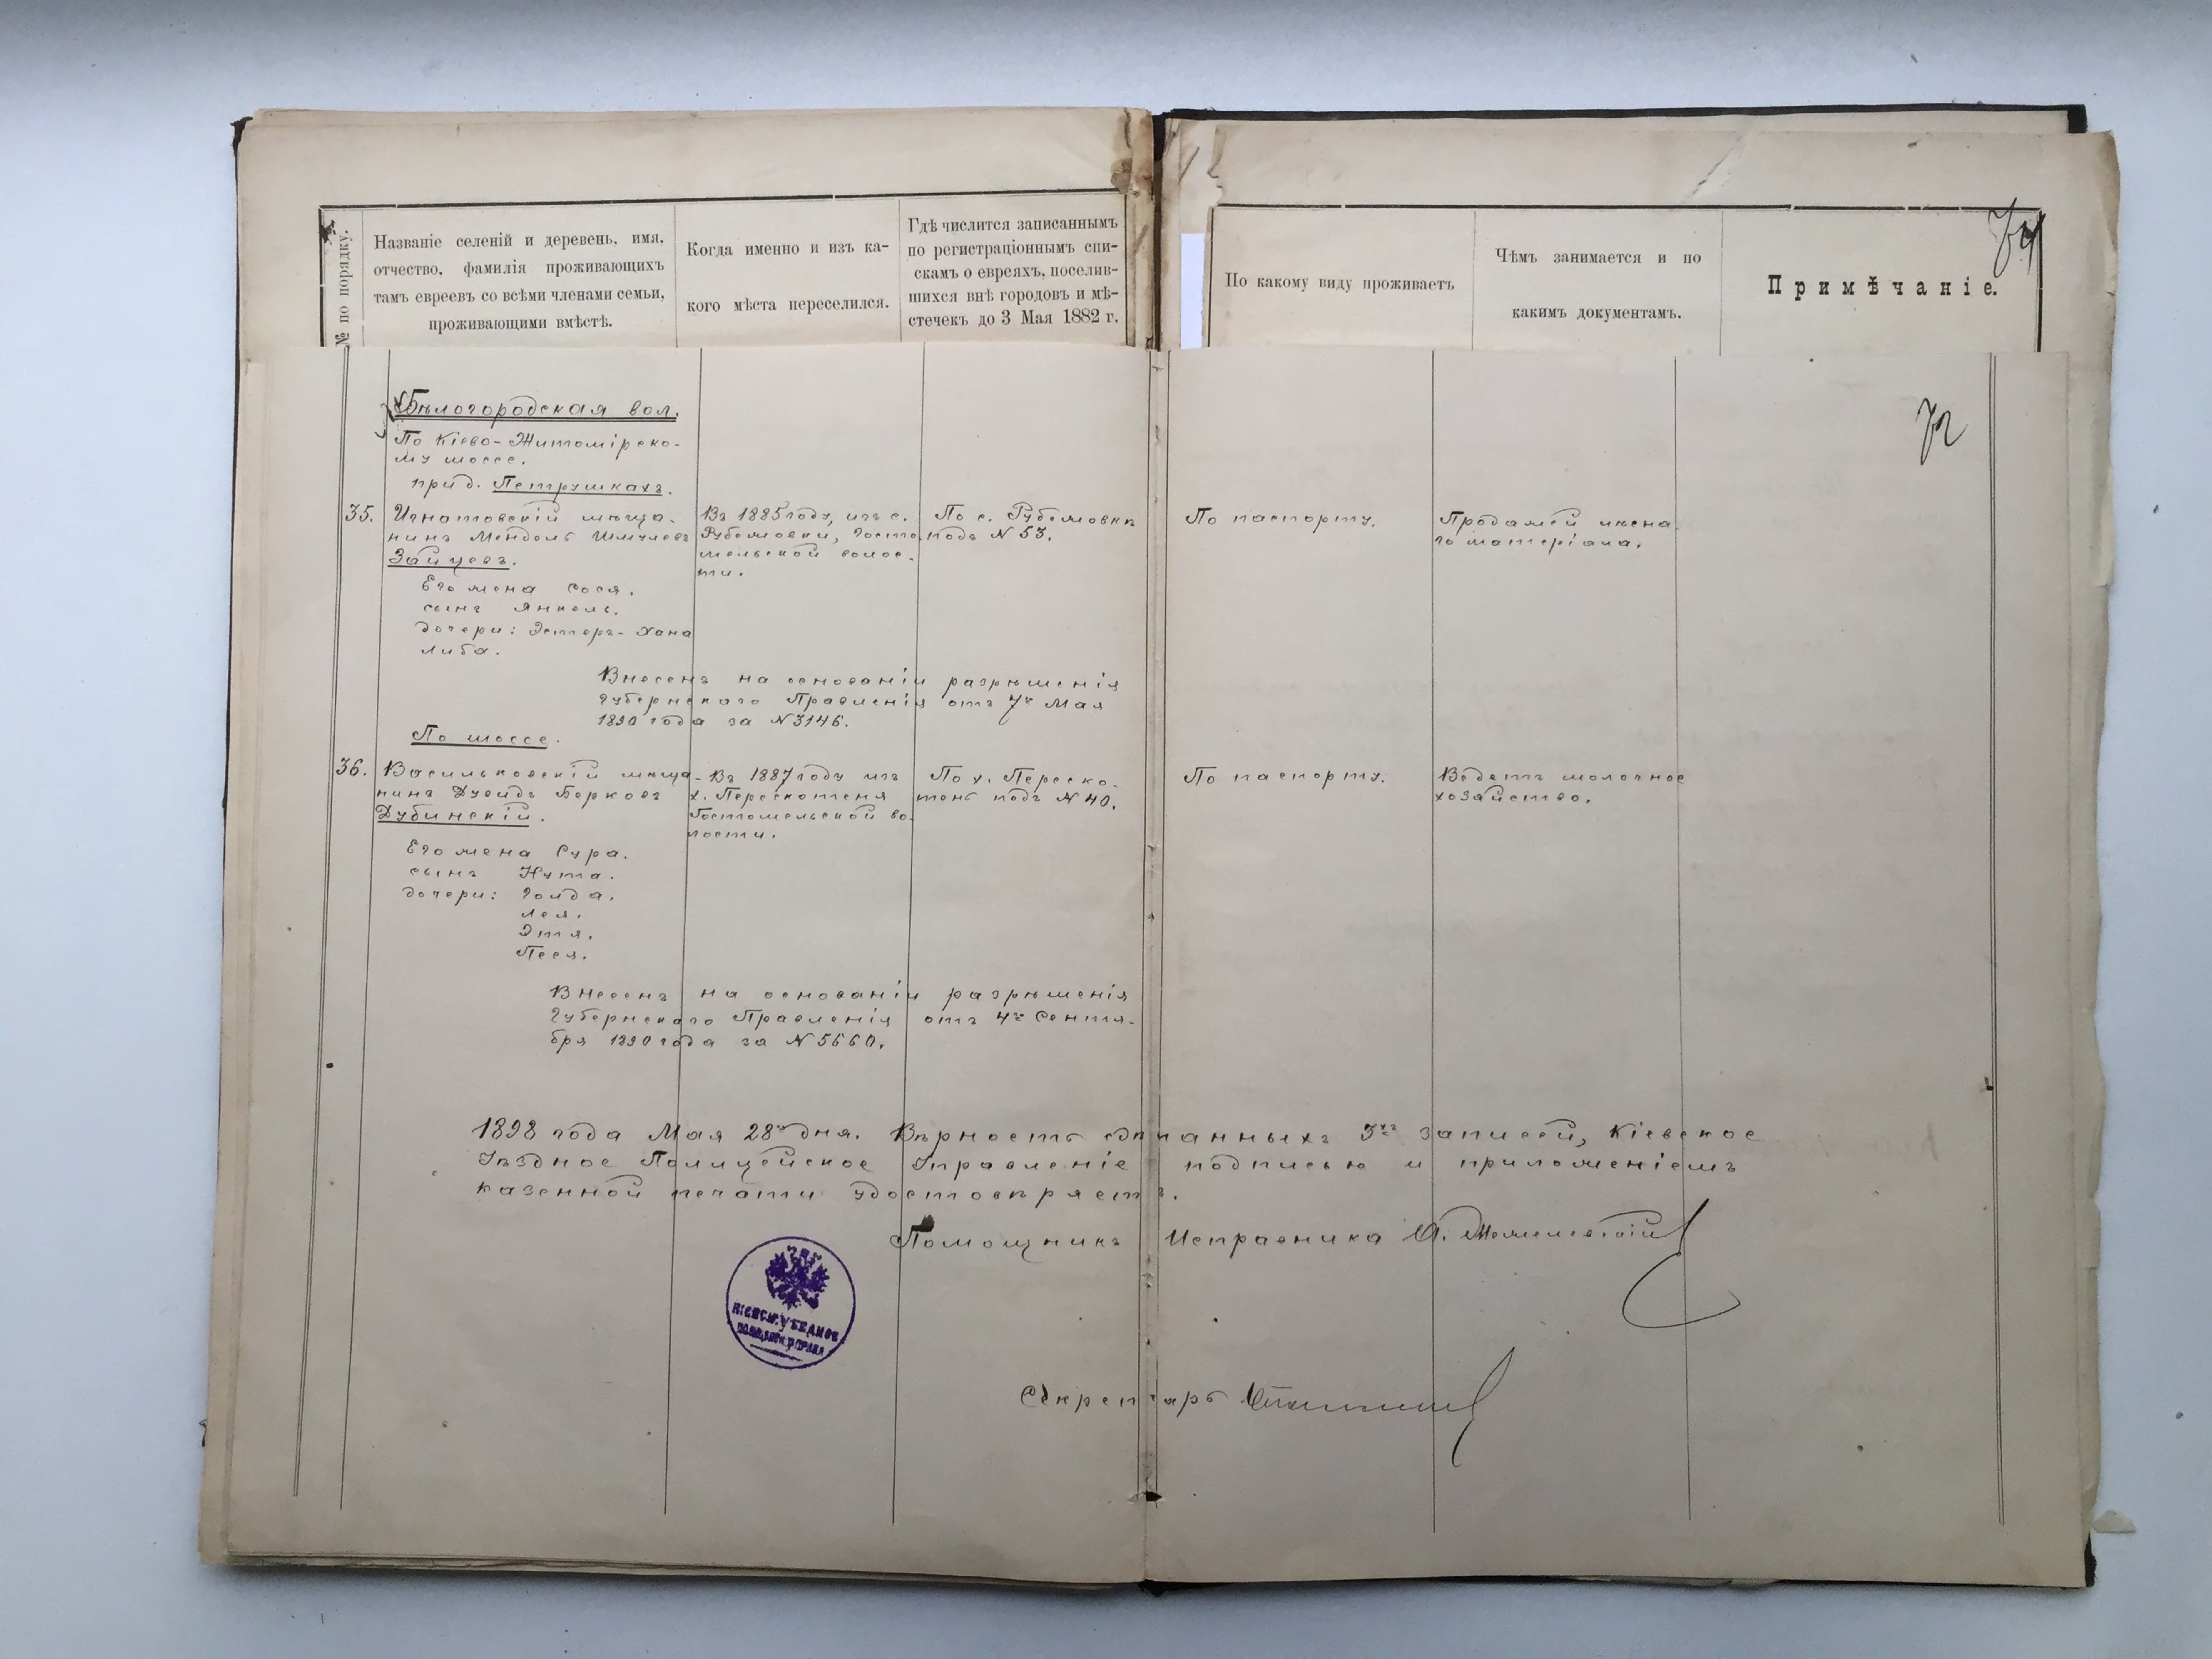 № по порядку.
Названіе селеній и деревень, имя,
отчество, фамилія проживающихъ
тамъ евреевъ со всѣми членами семьи,
проживающими вмѣстѣ.
Когда именно и изъ ка-
кого мѣста переселился.
Гдѣ числится записаннымъ
по регистраціоннымъ спи-
скамъ о евреяхъ, поселив-
шихся внѣ городовъ и мѣ-
стечекъ до 3 Мая 1882 г.
По какому виду проживаетъ
Чѣмъ занимается и по
какимъ документамъ.
Примѣчаніе.
Бѣлогородская вол.
По Кіево-Житомірско-
му шоссе.
при д. Петрушкахъ.
35.
Игнатовскій мѣща-
нинъ Мендель Шмулевъ
Зайцевъ.
Его жена Сося.
сынъ Янкель.
дочери: Эстеръ-Хана
Либа.
Въ 1885 году, изъ с.
Рубежовки, Госто
мельской волос-
ти.
По с. Рубежовкѣ
подъ № 53.
По паспорту.
Продажей лѣсна
го матеріала.
Внесенъ на основаніи разрѣшенія
Губернскаго Правленія отъ 7го Мая
1890 года за № 3146.
По шоссе.
36.
Васильковскій мѣща-
нинъ Дувидъ Берковъ
Дубинскій.
Его жена Сура.
сынъ Нута.
дочери: Голда.
Лея.
Этя.
Песя.
Въ 1887 году изъ
х. Перескотеня
Гостомельской во-
лости.
По х. Переско-
тень подъ № 40.
По паспорту.
Ведетъ молочное
хозяйство.
Внесенъ на основаніи разрѣшенія
Губернскаго Правленія отъ 4го Сентя-
бря 1890 года за № 5660.
1898 года Мая 28го дня. Вѣрность записей, Кіевское
Уѣздное Полицейское Управленіе подписью и приложеніемъ
казенной печати удостовѣряетъ.
Помощникъ Исправника
Секретарь